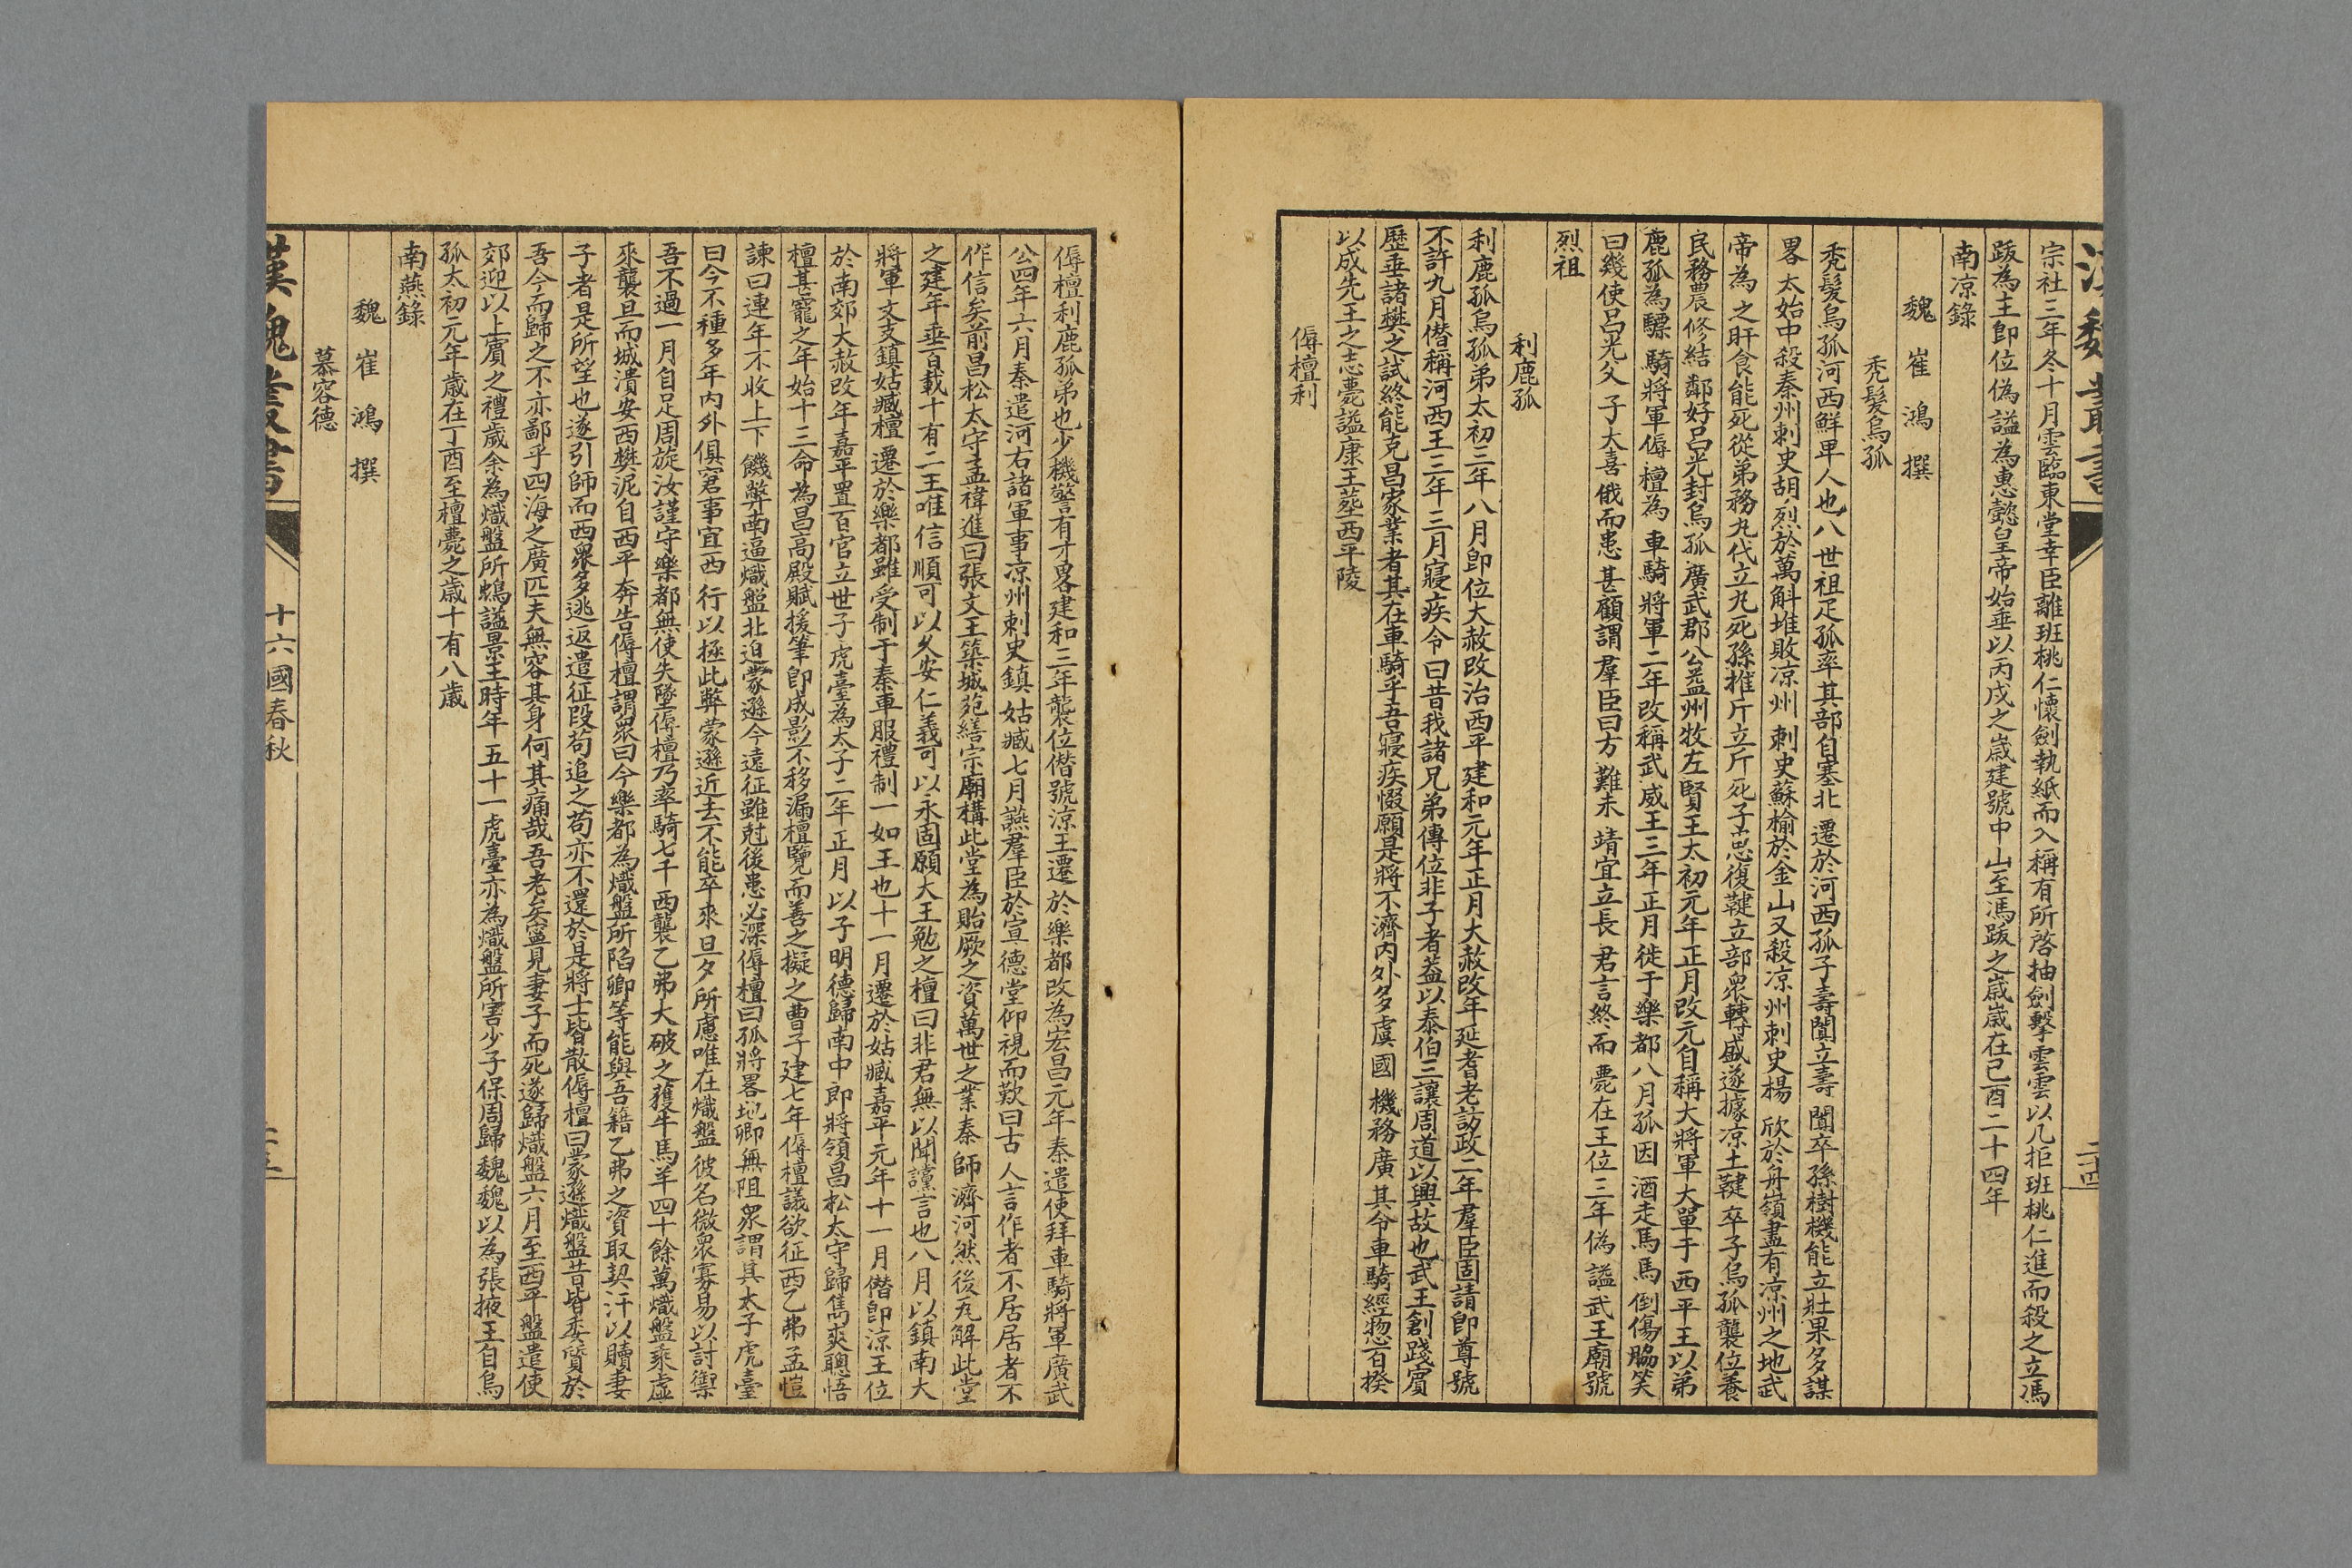 漢魏叢書
二十四
宗社三年冬十月雲臨東堂幸臣離班桃仁懷劍執紙而入稱有所啓抽劍擊雲雲以几拒班桃仁進而殺之立馮
跋為主即位偽謚為惠懿皇帝始垂以丙戌之嵗建號中山至馮跋之嵗嵗在己酉二十四年
南凉錄
魏崔鴻撰
禿髮烏孤
禿髮烏孤河西鮮卑人也八世祖疋孤率其部自塞北遷於河西孤子壽闐立壽闐卒孫樹機能立壯果多謀
畧太始中殺秦州刺史胡烈於萬斛堆敗凉州刺史蘇榆於金山又殺凉州刺史楊欣於舟嶺盡有凉州之地武
帝為之旰食能死從弟務丸代立丸死孫推斤立斤死子思復鞬立部衆轉盛遂據凉土鞬卒子烏孤襲位養
民務農修結鄰好呂光封烏孤廣武郡公益州牧左賢王太初元年正月改元自稱大將軍大單于西平王以弟
鹿孤為驃騎將軍傉檀為車騎將軍二年改稱武威王三年正月徙于樂都八月孤因酒走馬馬倒傷脇笑
曰幾使呂光父子大喜俄而患甚顧謂羣臣曰方難未靖宜立長君言終而薨在王位三年偽謚武王廟號
烈祖
利鹿孤
利鹿孤烏孤弟太初三年八月即位大赦改治西平建和元年正月大赦改年延耆老訪政二年羣臣固請即尊號
不許九月僭稱河西王三年三月寢疾令曰昔我諸兄弟傳位非子者葢以泰伯三讓周道以興故也武王創踐寶
歷垂諸樊之試終能克昌家業者其在車騎乎吾寢疾惙願是將不濟內外多虞國機務廣其令車騎經揔百揆
以成先王之志薨謚康王葬西平陵
傉檀利
傉檀利鹿孤弟也少機警有才畧建和三年襲位僭號涼王遷於樂都改為宏昌元年秦遣使拜車騎將軍廣武
公四年六月秦遣河右諸軍事凉州刺史鎮姑臧七月讌羣臣於宣德堂仰視而歎曰古人言作者不居居者不
作信矣前昌松太守孟禕進曰張文王築城苑繕宗廟構此堂為貽厥之資萬世之業秦師濟河然後尨解此堂
之建年垂百載十有二王唯信順可以久安仁義可以永固願大王勉之檀曰非君無以聞讜言也八月以鎮南大
將軍文支鎮姑臧檀遷於樂都雖受制于秦車服禮制一如王也十一月遷於姑臧嘉平元年十一月僭即涼王位
於南郊大赦改年嘉平置百官立世子虎臺為太子二年正月以子明德歸南中郎將領昌松太守歸雋爽聰悟
檀甚寵之年始十三命為昌高殿賦援筆即成影不移漏檀覽而善之擬之曹子建七年傉檀議欲征西乙弗孟愷
諫曰連年不收上下饑弊南逼熾盤北迫蒙遜今遠征雖尅後患必深傉檀曰孤將畧地卿無阻衆謂其太子虎臺
曰今不種多年內外俱窘事宜西行以拯此弊蒙遜近去不能卒來旦夕所慮唯在熾盤彼名微衆寡易以討禦
吾不過一月自足周旋汝謹守樂都無使失墜傉檀乃率騎七千西襲乙弗大破之獲牛馬羊四十餘萬熾盤乘虛
來襲旦而城潰安西樊泥自西平奔告傉檀謂衆曰今樂都為熾盤所陷卿等能與吾籍乙弗之資取契汗以贖妻
子者是所望也遂引師而西衆多逃返遣征段苟追之苟亦不還於是將士皆散傉檀曰蒙遜熾盤昔皆委質於
吾今而歸之不亦鄙乎四海之廣匹夫無容其身何其痛哉吾老矣寧見妻子而死遂歸熾盤六月至西平盤遣使
郊迎以上賓之禮歲余為熾盤所鴆謚景王時年五十一虎臺亦為熾盤所害少子保周歸魏魏以為張掖王自烏
孤太初元年歲在丁酉至檀薨之歲十有八歲
南燕錄
魏崔鴻撰
慕容德
漢魏叢書
十六國春秋